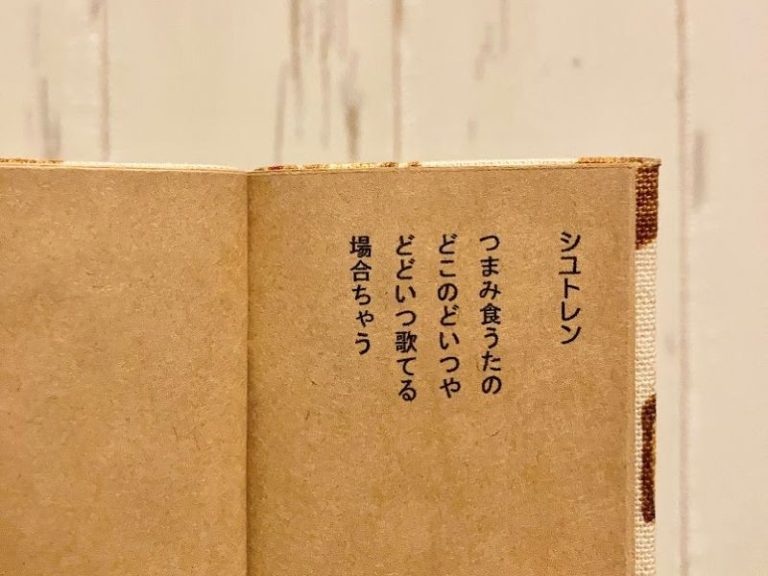 シュトレン
つまみ食うたの
どこのどいつや
どどいつ歌てる
場合ちゃう